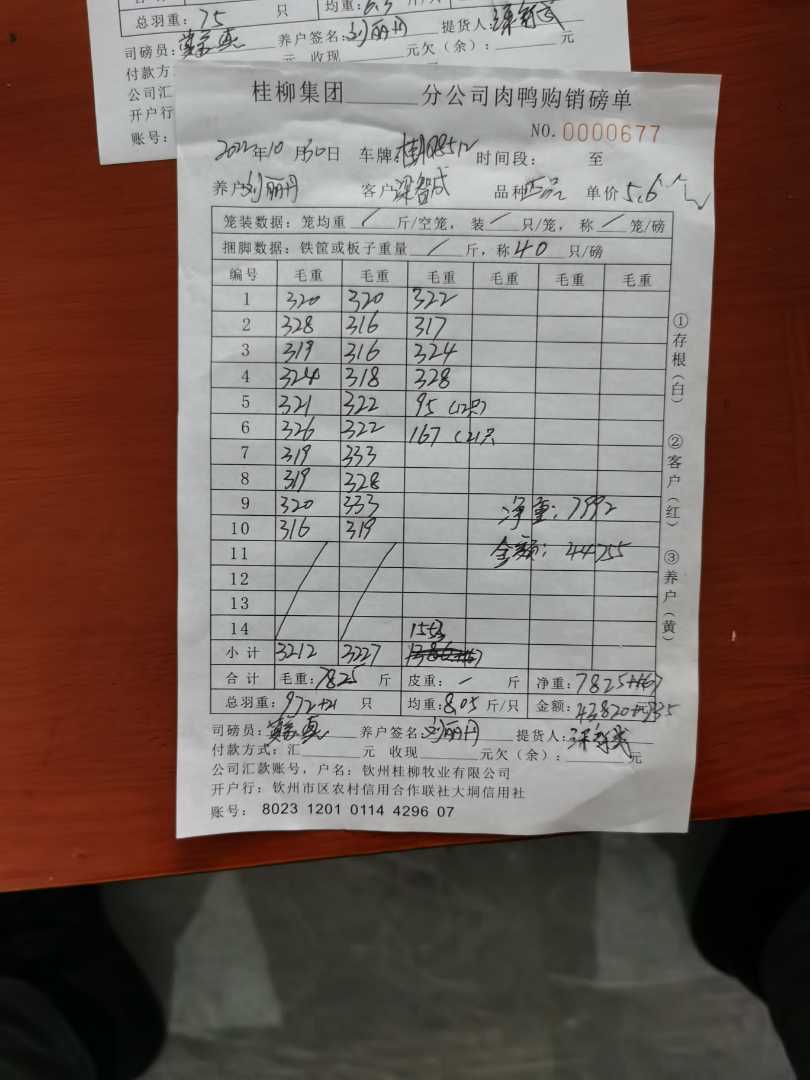 总羽重：75 只 均重： 斤/只
司磅员： 养户签名：刘丽丹 提货人：
付款方 元 收现 元欠（余）： 元
公司汇
开户行
账号：
桂柳集团 分公司肉鸭购销磅单
NO.0000677
2022年10月30日 车牌：桂 Q8512 时间段： 至
养户刘丽丹 客户梁智成 品种 单价5.6
笼装数据：笼均重 / 斤/空笼，装 / 只/笼，称 / 笼/磅
捆脚数据：铁筐或板子重量 / 斤，称40只/磅
编号 毛重 毛重 毛重 毛重 毛重 毛重
1 320 320 322
2 328 316 317
3 319 316 324
4 324 318 328
5 321 322 95（12只）
6 326 322 167（21只
7 319 333
8 319 328
9 320 333 净重：7992
10 316 319
11 金额：44755
12
13
14 1553
小计 3212 3227
合计 毛重：7825斤 皮重：- 斤 净重：7825+167
总羽重：972+21 只 均重：8.05斤/只 金额：43820+935
司磅员： 养户签名：刘丽丹 提货人：梁智成
付款方式：汇 元 收现 元欠（余）： 元
公司汇款账号，户名：钦州桂柳牧业有限公司
开户行：钦州市区农村信用合作联社大垌信用社
账号：8023 1201 0114 4296 07
①存根（白）
②客户（红）
③养户（黄）